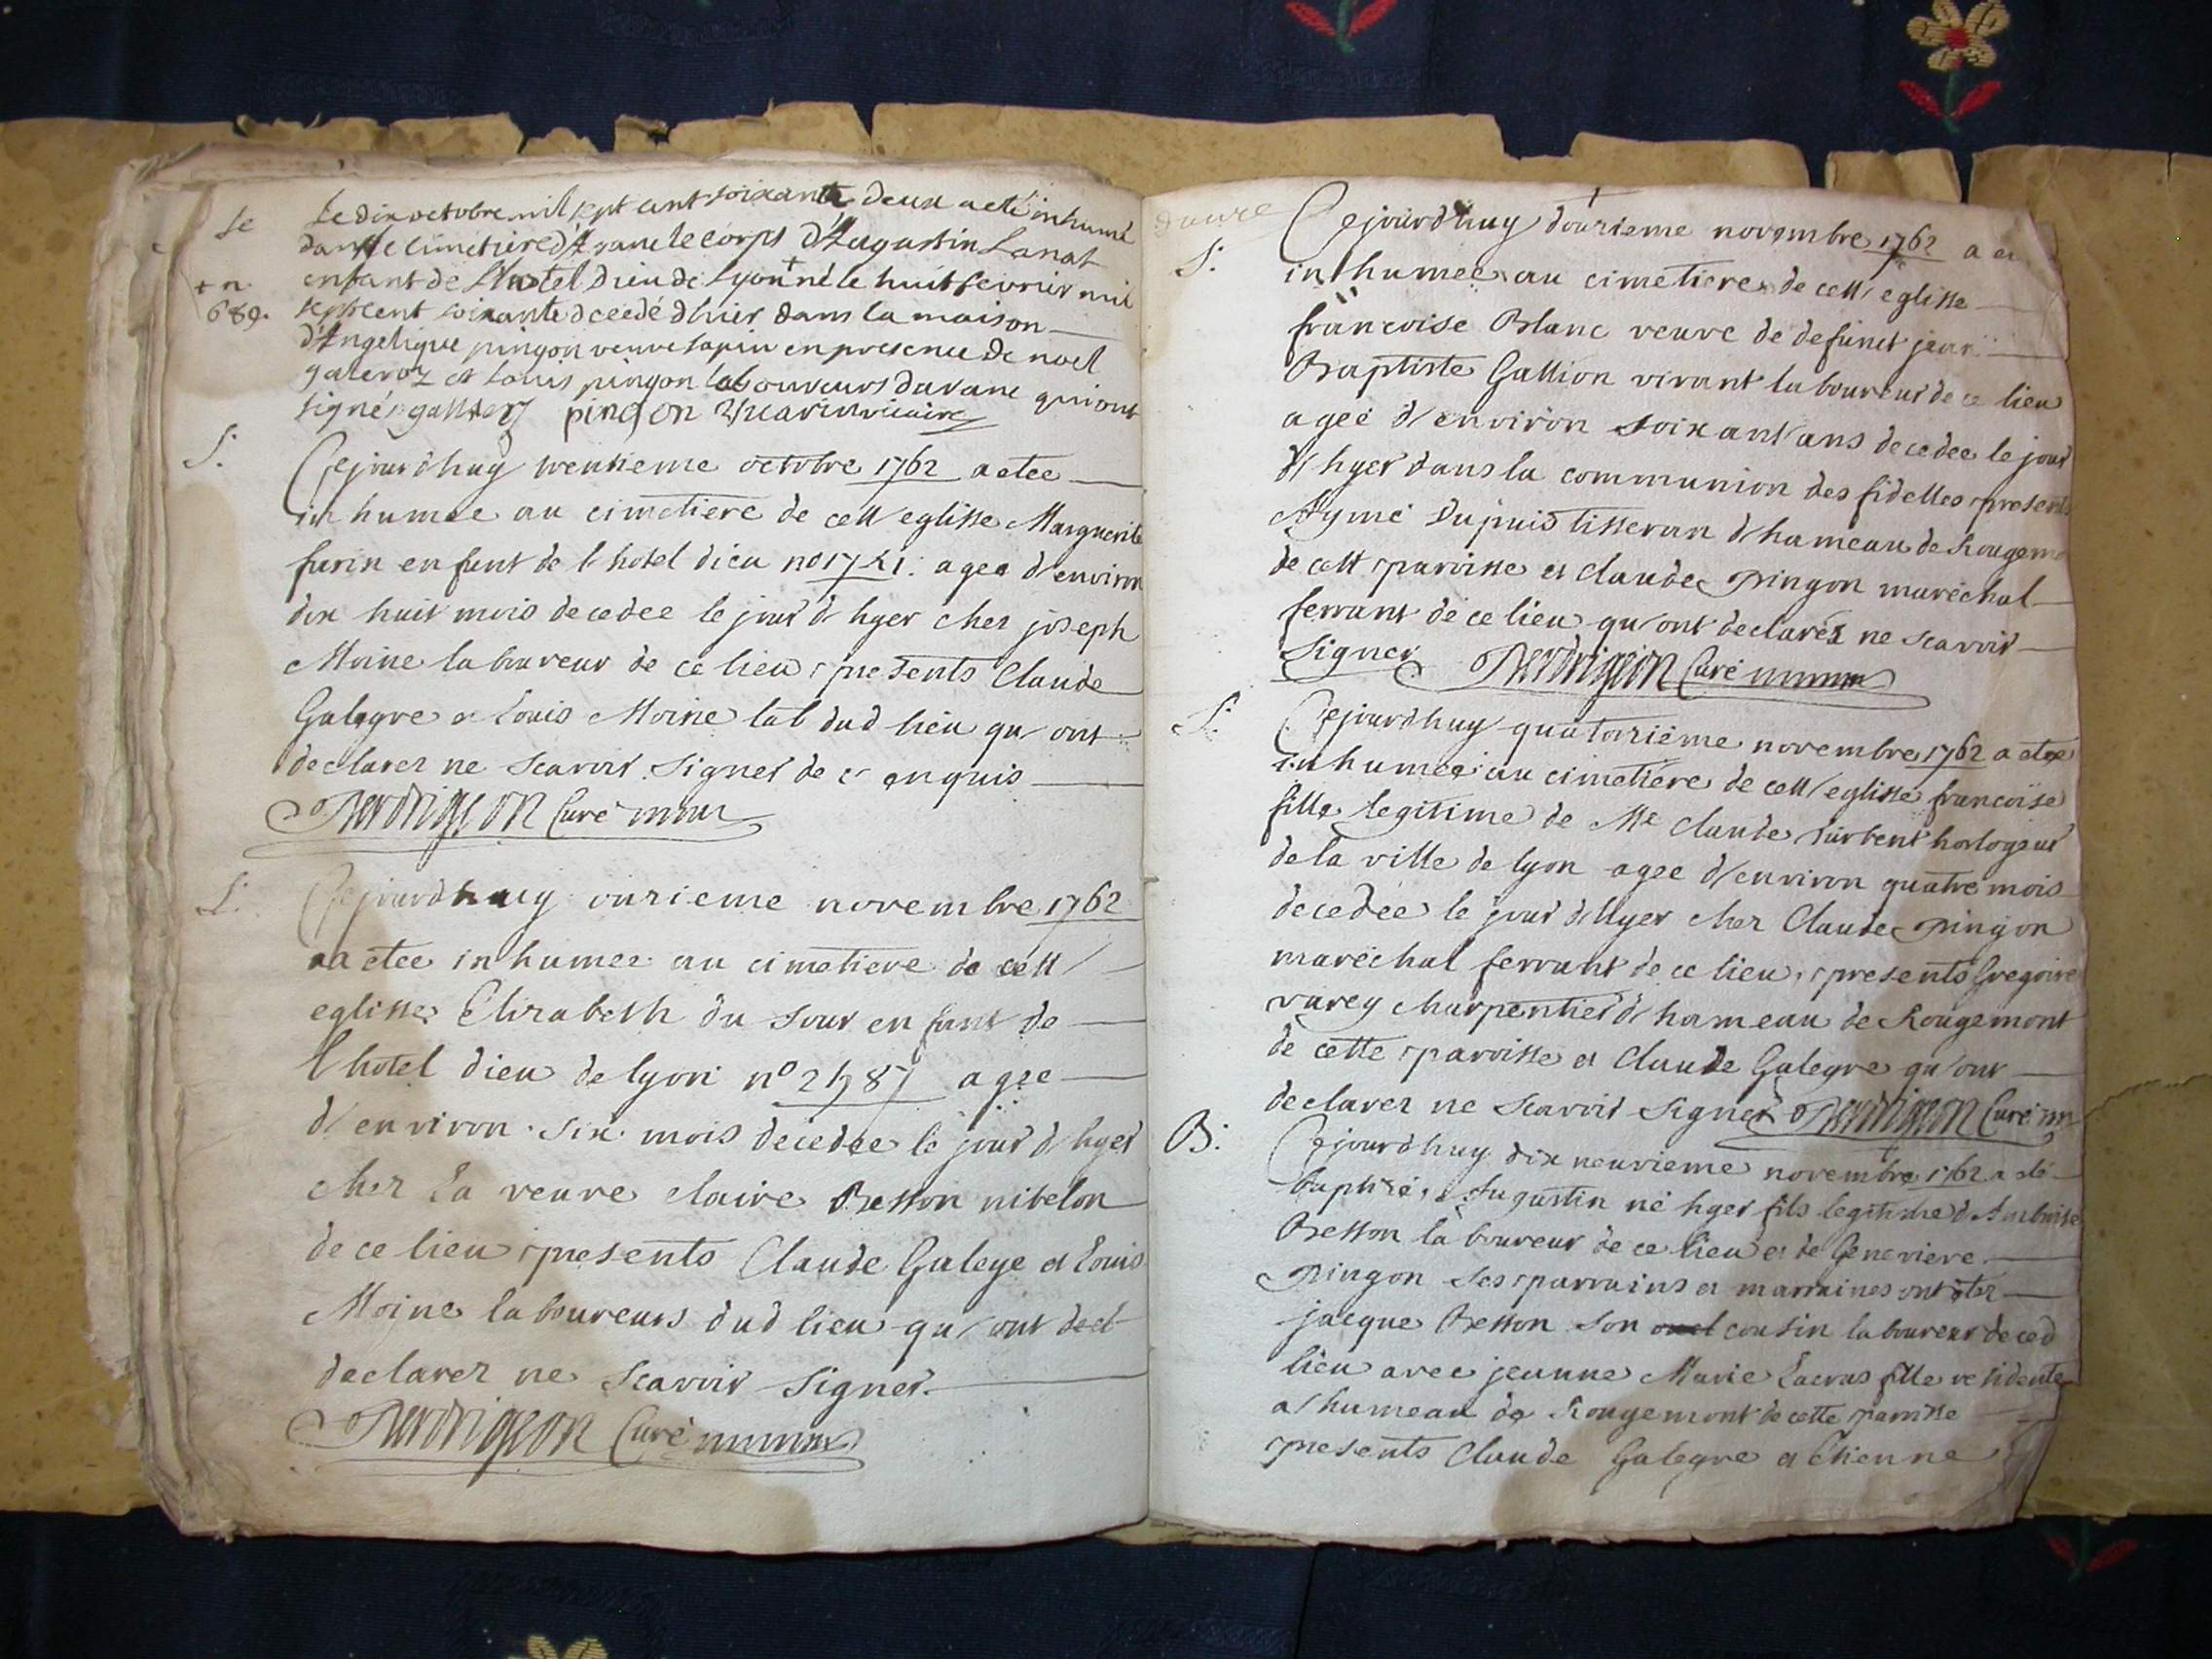 Se
Le dix octobre mil sept cent soixante deux a eté inhumé
dans le cimetiere d'Aranc le corps d'Augustin Lanat
enfant de l'hotel Dieu de Lyon + né le huit fevrier mil
+ n.
689.
sept cent soixante decedé d'hier dans la maison
d'Angelique pingon veuve Sapin en presence de noel
galeroz et Louis pingon laboureurs daranc qui ont
signé pingon vicaire
S.
Cejourdhuy trentieme octobre 1762 a etee
inhumee au cimetiere de cett eglisse Marguerite
furin enfant de l hotel dieu no agee d'environ
dix huit mois decedee le jour d hyer cher joseph
Moine laboureur de ce lieu presents Claude
Galegre et Louis Moine lab dud lieu qu'ont
declarer ne scavoir signer de ce enquis
Perdrigeon Curé
S.
Cejourdhuy onzieme novembre 1762
a etee inhumee au cimetiere de cett
eglisse Elizabeth du Jour enfant de
l hotel dieu de lyon no agee
d'environ six mois decedee le jour d hyer
cher La veuve claire Besson nibelon
de ce lieu presents Claude Galeye et Louis
Moine laboureurs dud lieu qu'ont decl
declarer ne scavoir signer.
Perdrigeon Curé
Cejourdhuy douzieme novembre 1762 a et
S.
inhumee au cimetiere de cett eglisse
francoise Blanc veuve de defunct jean
Baptiste Gallion vivant laboureur de ce lieu
ageé d'environ soixant ans decedee le jour
d hyer dans la communion des fidelles presents
Aymé Dupuis tisseran d hameau de Rougemo
de cett paroisse et claude pingon maréchal
ferrant de ce lieu qu'ont declarez ne scavoir
signer Perdrigeon Curé
S.
Cejourdhuy quatorzième novembre 1762 a etee
inhumee au cimetiere de cett eglisse francoise
fille legitime de Me claude horlogeur
de la ville de lyon agee d'environ quatre mois
decedée le jour d hyer cher Claude pingon
maréchal ferrant de ce lieu, presents Gregoire
varey charpentier d hameau de Rougemont
de cette paroisse et Claude Galegre qu'ont
declarer ne scavoir signer Perdrigeon Curé
B.
Cejourdhuy dix neuvieme novembre 1762 a été
baptisé Augustin né hyer fils legitime d'Ambroise
Besson laboureur de ce lieu et de Genevieve
Pingon ses parrains et marraines ont eter
jacque Besson son cousin laboureur de ced
lieu avec jeanne Marie Lacras fille residente
a hameau de Rougemont de cette paroisse
presents Claude Galegre et Etienne